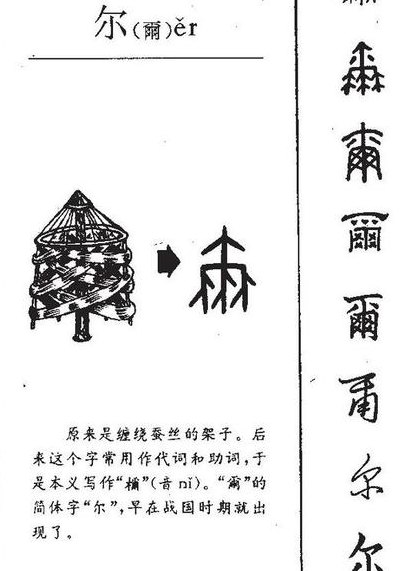 尔(爾)ěr
原来是缠绕蚕丝的架子。后
来这个字常用作代词和助词,于
是本义写作“檷”(音nǐ)。“爾”的
简体字“尔”,早在战国时期就出
现了。
爾
爾
尔
尔